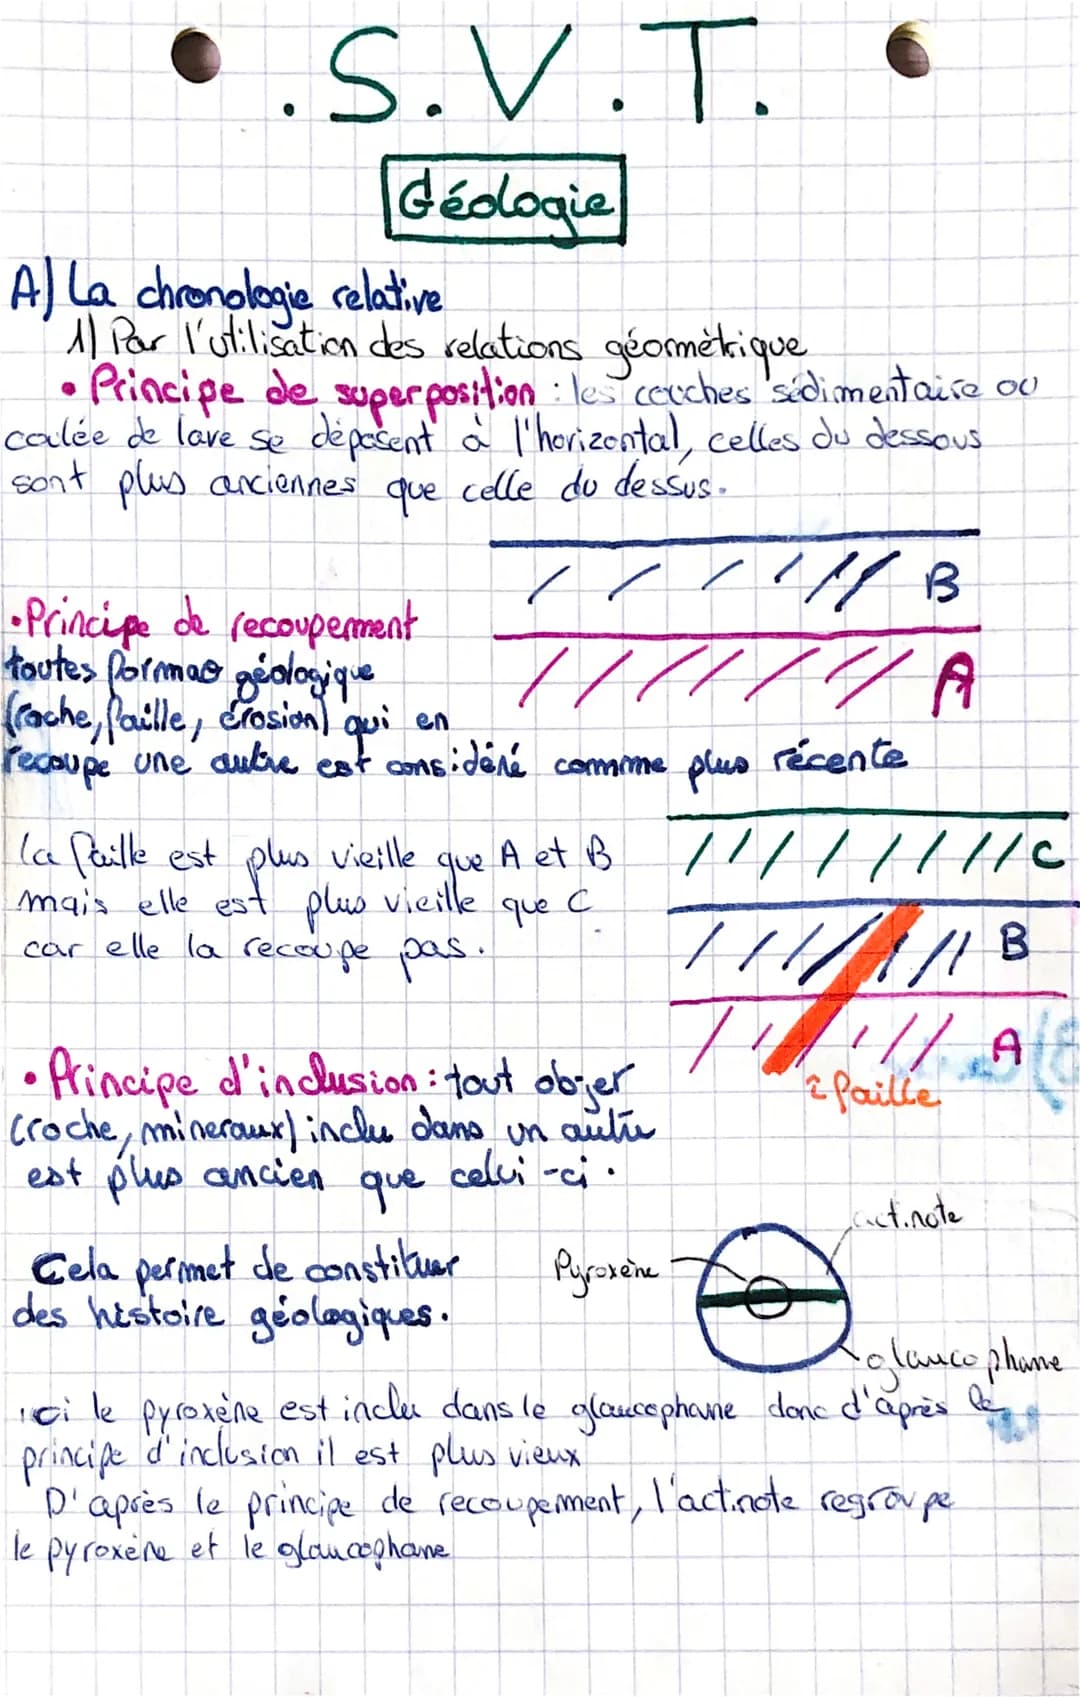 . S. V. T.
Géologie
A) La chronologie relative
1) Par l'utilisation des relations géométrique
• Principe de superposition : les couches sédimentaire ou
coulée de lave se déposent à l'horizontal, celles du dessous
sont plus anciennes que celle du dessus.
B
A
• Principe de recoupement
toutes formao géologique
(roche, faille, érosion) qui en
recoupe une autre est considéré comme plus récente
La faille est plus vieille que A et B
mais elle est plus vieille que C
car elle la recoupe pas.
C
B
A
faille
• Principe d'inclusion : tout objer
(roche, mineraux) inclu dans un autre
est plus ancien que celui-ci.
Cela permet de constituer
des histoire géologiques.
Pyroxène
actinote
glaucophane
ici le pyroxène est inclu dans le glaucophane donc d'après le
principe d'inclusion il est plus vieux
D'après le principe de recoupement, l'actinote regroupe
le pyroxène et le glaucophane